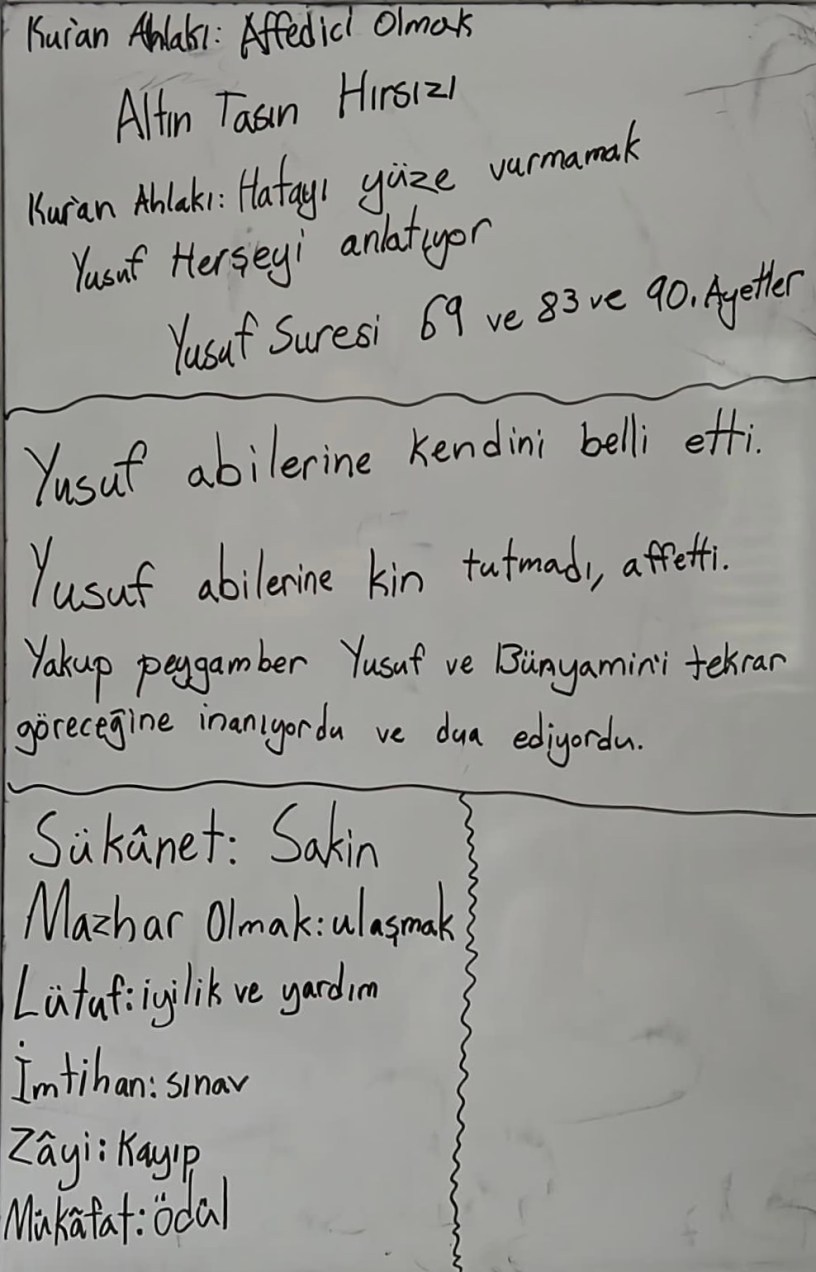 Kur'an Ahlakı: Affedici Olmak
Altın Tasın Hırsızı
Kur'an Ahlakı: Hatayı yüze vurmamak
Yusuf Herşeyi anlatıyor
Yusuf Suresi 69 ve 83 ve 90. Ayetler
Yusuf abilerine kendini belli etti.
Yusuf abilerine kin tutmadı, affetti.
Yakup peygamber Yusuf ve Bünyamin'i tekrar
göreceğine inanıyordu ve dua ediyordu.
Sükânet: Sakin
Mazhar Olmak: ulaşmak
Lütuf: iyilik ve yardım
İmtihan: sınav
Zâyi: Kayıp
Mükâfat: ödül